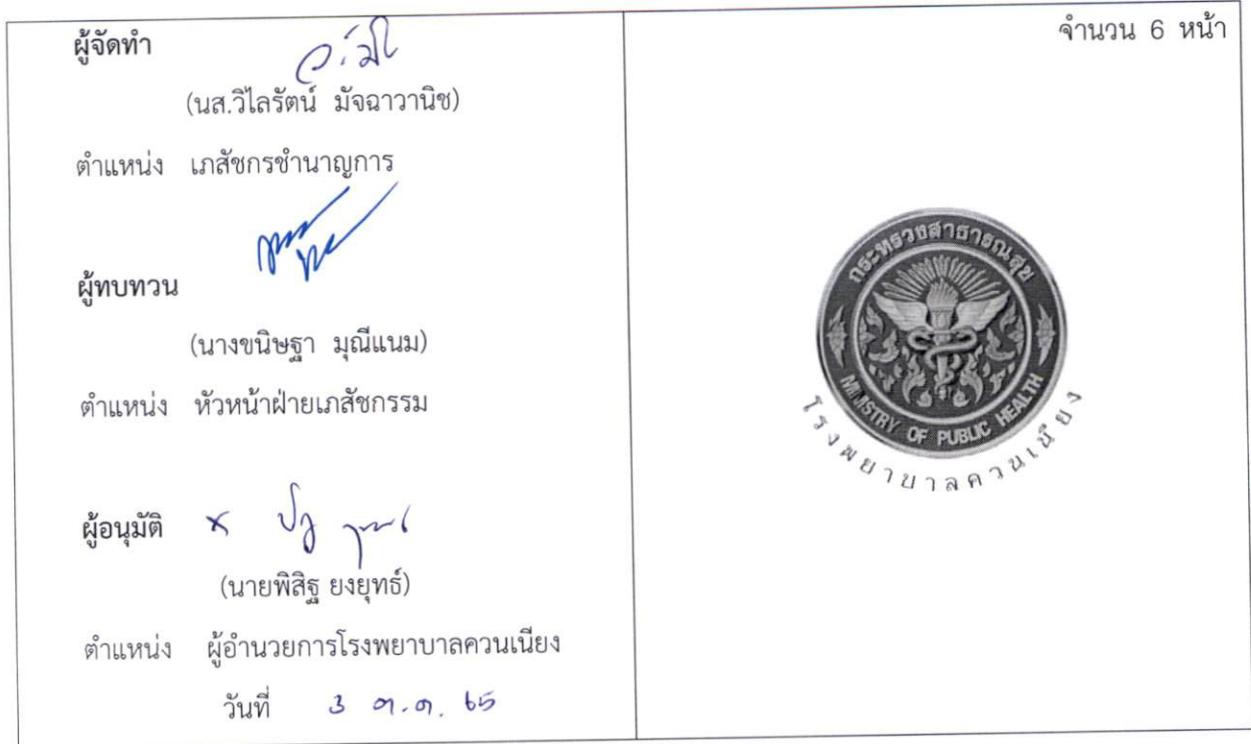 ผู้จัดทำ
(นส.วิไลรัตน์ มัจฉาวานิช)
ตำแหน่ง เภสัชกรชำนาญการ
ผู้ทบทวน
(นางขนิษฐา มุณีแนม)
ตำแหน่ง หัวหน้าฝ่ายเภสัชกรรม
ผู้อนุมัติ
(นายพิสิฐ ยงยุทธ์)
ตำแหน่ง ผู้อำนวยการโรงพยาบาลควนเนียง
วันที่ 3 ต.ค. 65
จำนวน 6 หน้า
กระทรวงสาธารณสุข
MINISTRY OF PUBLIC HEALTH
โรงพยาบาลควนเนียง